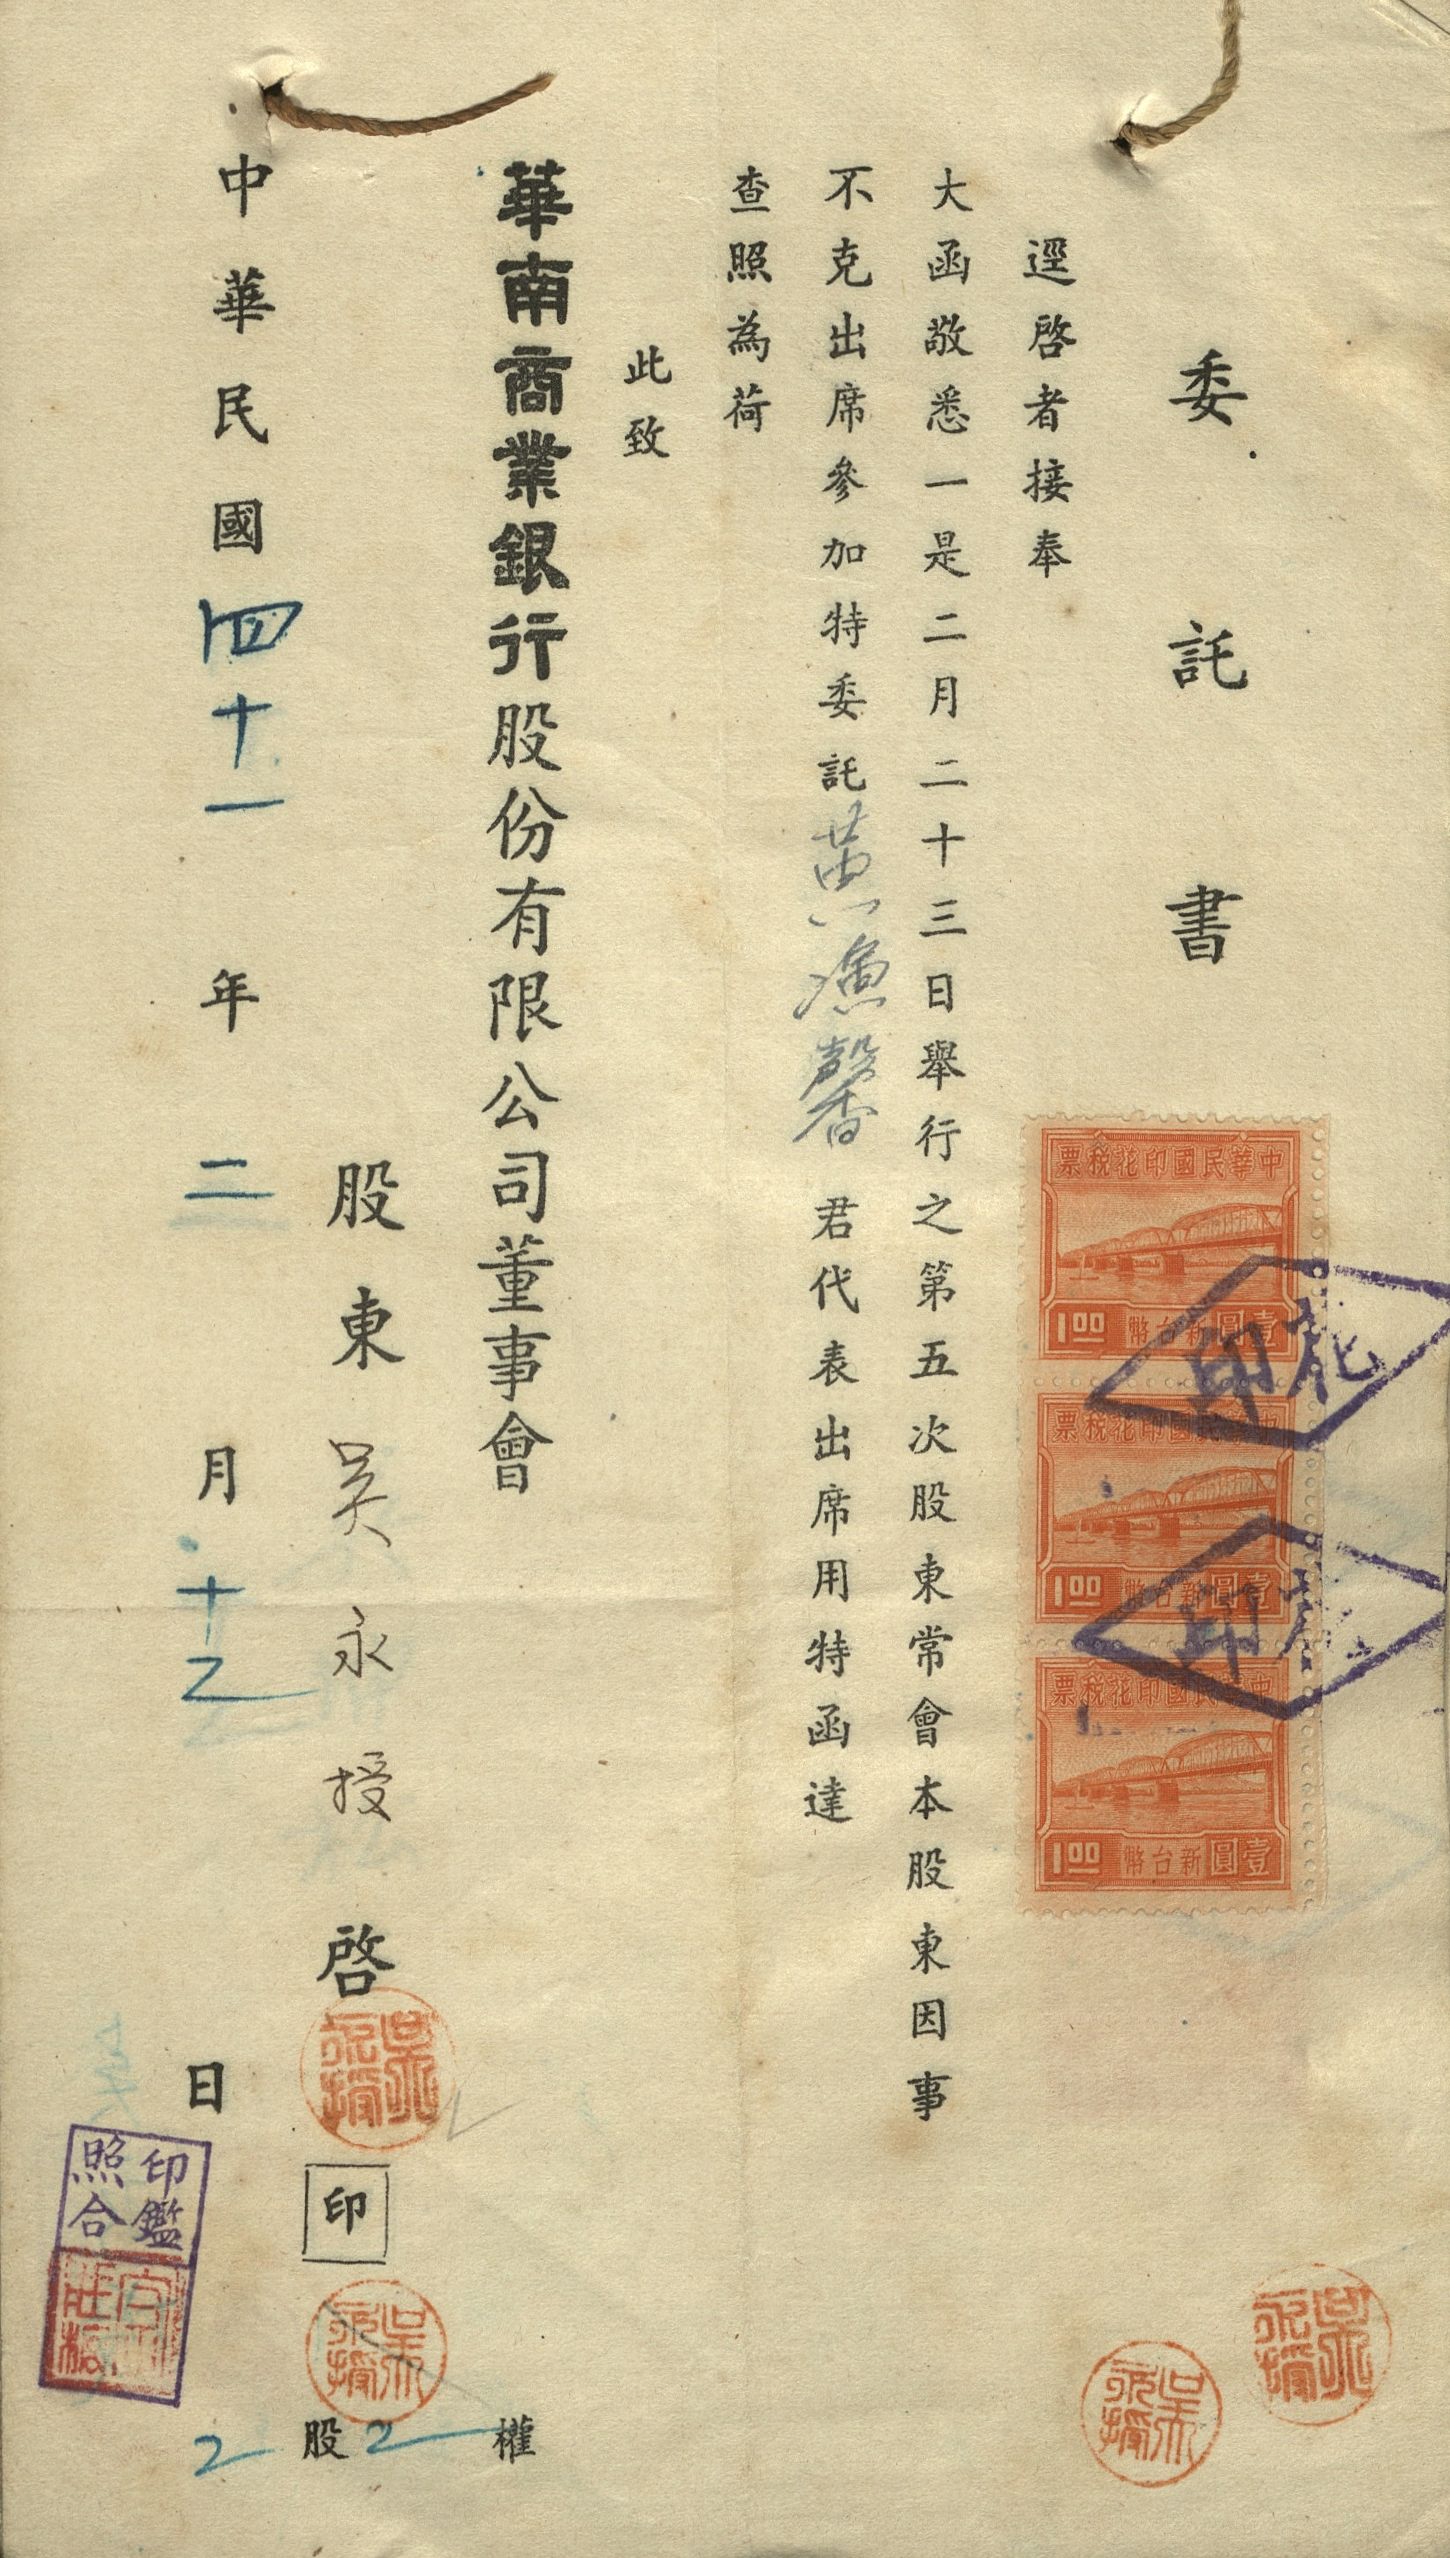 委託書
逕啓者接奉
大函敬悉一是二月二十三日舉行之第五次股東常會本股東因事
不克出席參加特委託黃漁馨君代表出席用特函達
查照為荷
此致
華南商業銀行股份有限公司董事會
股東吳永授啓
印
權2股2
中華民國四十一年二月十乙日
中華民國印花稅票
壹圓新台幣
1.00
中華民國印花稅票
壹圓新台幣
1.00
中華民國印花稅票
壹圓新台幣
1.00
花印
花印
吳永授
吳永授
吳永授
吳永授
印鑑
照合